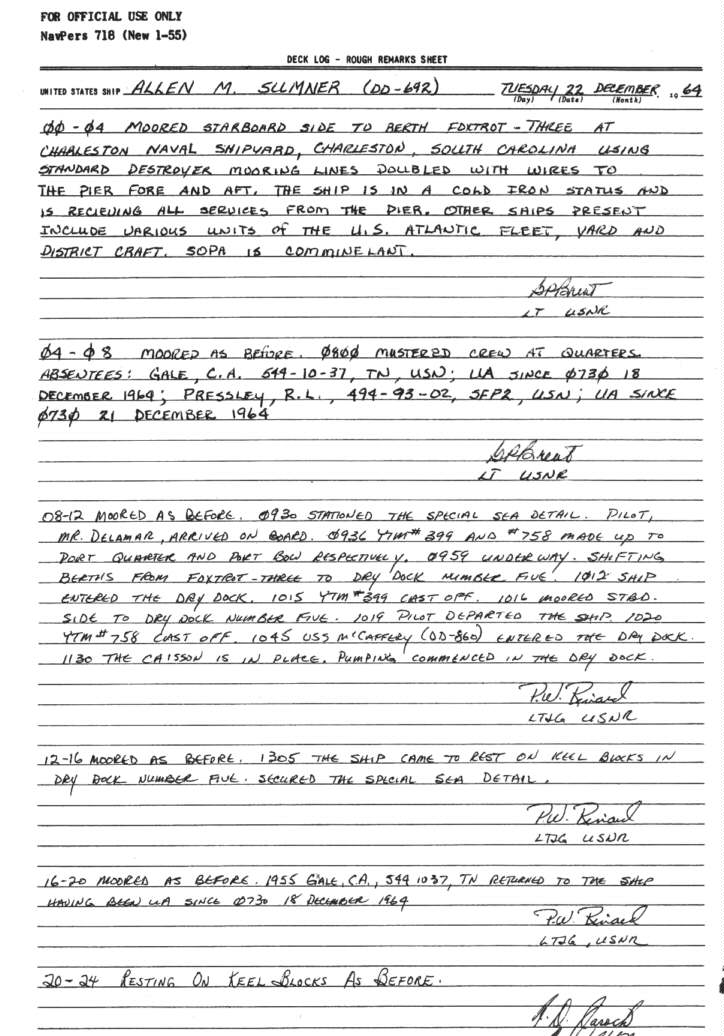 FOR OFFICIAL USE ONLY
NavPers 718 (New 1-55)
DECK LOG - ROUGH REMARKS SHEET
UNITED STATES SHIP ALLEN M. SUMNER (DD-692) TUESDAY 22 DECEMBER, 1964
(Day) (Date) (Month)
ØØ - Ø4 MOORED STARBOARD SIDE TO BERTH FOXTROT - THREE AT
CHARLESTON NAVAL SHIPYARD, CHARLESTON, SOUTH CAROLINA USING
STANDARD DESTROYER MOORING LINES DOUBLED WITH WIRES TO
THE PIER FORE AND AFT. THE SHIP IS IN A COLD IRON STATUS AND
IS RECIEVING ALL SERVICES FROM THE PIER. OTHER SHIPS PRESENT
INCLUDE VARIOUS UNITS OF THE U.S. ATLANTIC FLEET, YARD AND
DISTRICT CRAFT. SOPA IS COMMINELANT.
LT USNR
Ø4 - Ø8 MOORED AS BEFORE. Ø8ØØ MUSTERED CREW AT QUARTERS.
ABSENTEES: GALE, C.A. 549-10-37, TN, USN; UA SINCE Ø73Ø 18
DECEMBER 1964; PRESSLEY, R.L., 494-93-02, SFP2, USN; UA SINCE
Ø73Ø 21 DECEMBER 1964
LT USNR
08-12 MOORED AS BEFORE. Ø930 STATIONED THE SPECIAL SEA DETAIL. PILOT,
MR. DELAMAR, ARRIVED ON BOARD. Ø936 YTM# 399 AND #758 MADE UP TO
PORT QUARTER AND PORT BOW RESPECTIVELY. Ø959 UNDERWAY. SHIFTING
BERTHS FROM FOXTROT-THREE TO DRY DOCK NUMBER FIVE. 1012 SHIP
ENTERED THE DRY DOCK. 1015 YTM #399 CAST OFF. 1016 MOORED STBD.
SIDE TO DRY DOCK NUMBER FIVE. 1019 PILOT DEPARTED THE SHIP. 1020
YTM# 758 CAST OFF. 1045 USS McCAFFERY (DD-860) ENTERED THE DRY DOCK.
1130 THE CAISSON IS IN PLACE. PUMPING COMMENCED IN THE DRY DOCK.
P.W. Rinard
LTJG USNR
12-16 MOORED AS BEFORE. 1305 THE SHIP CAME TO REST ON KEEL BLOCKS IN
DRY DOCK NUMBER FIVE. SECURED THE SPECIAL SEA DETAIL.
P.W. Rinard
LTJG USNR
16-20 MOORED AS BEFORE. 1955 GALE, CA., 549 1037, TN RETURNED TO THE SHIP
HAVING BEEN UA SINCE Ø730 18 DECEMBER 1964
P.W. Rinard
LTJG, USNR
20-24 RESTING ON KEEL BLOCKS AS BEFORE.